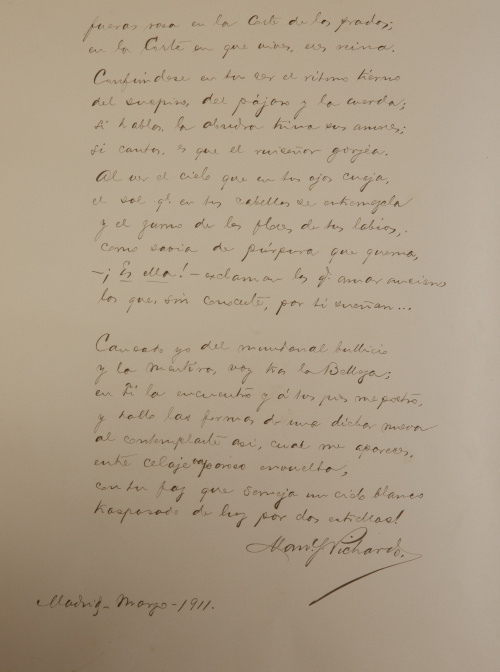 fueras rosa en la Corte de los prados;
en la Corte en que vives, eres reina.
Confúndese en tu ser el ritmo tierno
del suspiro del pájaro y la cuerda;
si hablas, la alondra trina sus amores;
si cantas, es que el ruiseñor gorjéa.
Al ver el cielo que en tus ojos cuaja,
el sol q. en tus cabellos se
y el jumo de las flores de tus labios,
como savia de púrpura que quema,
—¡Es ella!— exclaman los q. amar ansiaron
los que, sin conocerte, por ti sueñan...
Cansado yo del mundanal bullicio
y la mentira voy tras la Belleza;
en Ti la encuentro y á tus pies me postro,
y hallo las formas de una dicha nueva
al contemplarte asi, cual me apareces,
entre celaje vaporoso envuelta,
con tu faz que semeja un cielo blanco
traspasado de luz por dos estrellas!
Man. S. Pichardo.
Madrid - Marzo - 1911.